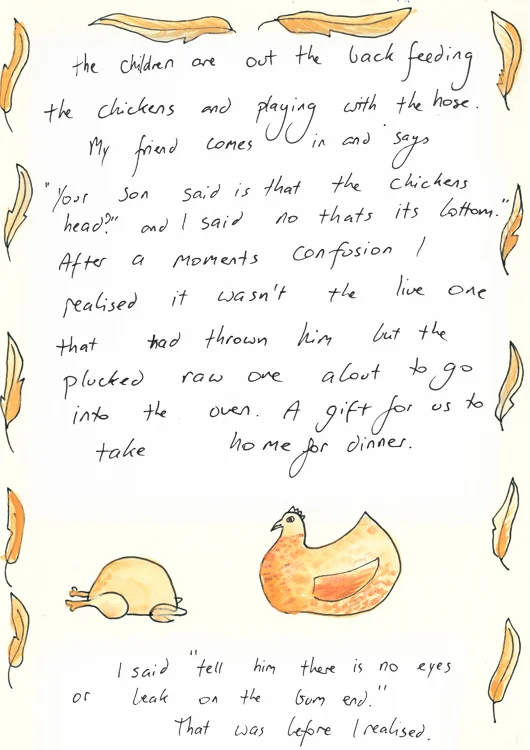 the children are out the back feeding
the chickens and playing with the hose.
My friend comes in and says
"Your son said is that the chickens
head?" and I said no thats its bottom."
After a moments confusion I
realised it wasn't the live one
that had thrown him but the
plucked raw one about to go
into the oven. A gift for us to
take home for dinner.
I said "tell him there is no eyes
or beak on the bum end."
That was before I realised.